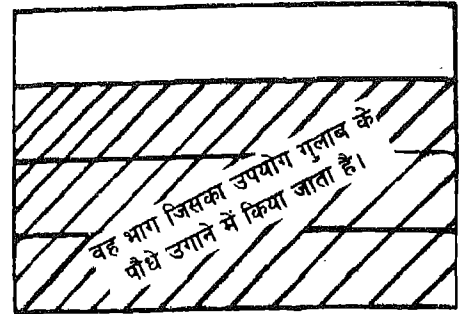 वह भाग जिसका उपयोग गुलाब के
पौधे उगाने में किया जाता है।